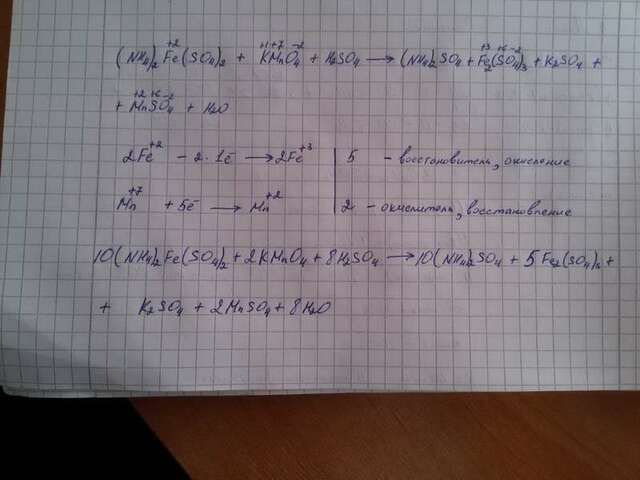 (NH₄)₂Fe⁺²(SO₄)₂ + K⁺¹Mn⁺⁷O₄⁻² + H₂SO₄ ⟶ (NH₄)₂SO₄ + Fe₂⁺³(S⁺⁶O₄⁻²)₃ + K₂SO₄ +
+ Mn⁺²S⁺⁶O₄⁻² + H₂O
2Fe⁺² - 2·1ē ⟶ 2Fe⁺³ | 5 - восстановитель, окисление
Mn⁺⁷ + 5ē ⟶ Mn⁺² | 2 - окислитель, восстановление
10(NH₄)₂Fe(SO₄)₂ + 2KMnO₄ + 8H₂SO₄ ⟶ 10(NH₄)₂SO₄ + 5Fe₂(SO₄)₃ +
+ K₂SO₄ + 2MnSO₄ + 8H₂O